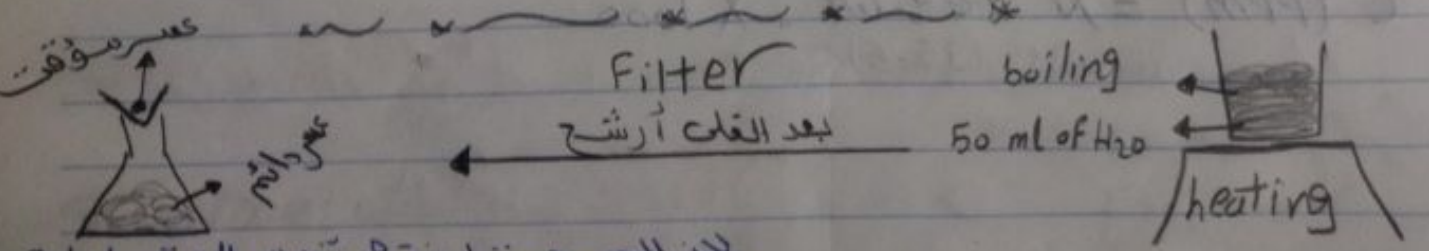 عسر مؤقت
Filter
boiling
بعد الغلي أرشح
50 ml of H2O
عسر دائم
heating